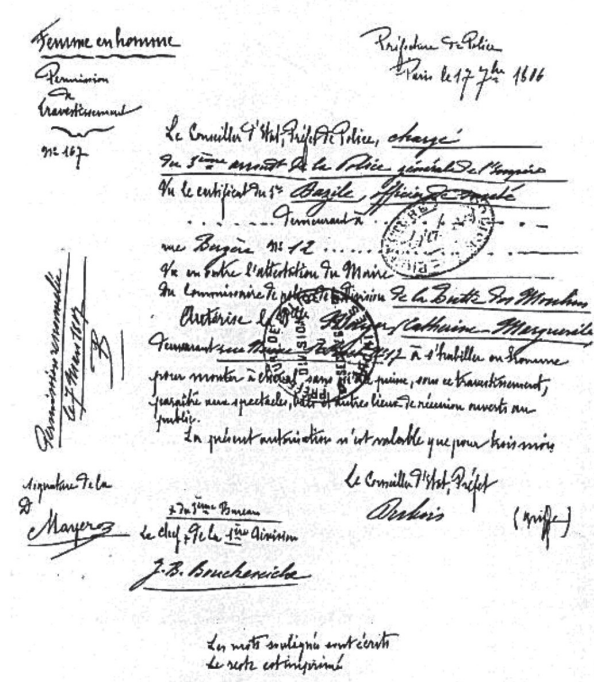 Femme en homme
Permission
de
travestissement
Nº 167
Préfecture de Police
Paris le 17 7bre 1806
Le Conseiller d'Etat, Préfet de Police, chargé
du 3ème arrondt de la Police générale de l'Empire
Vu le certificat du Sr Bazile, officier de santé
demeurant à
rue Bergère Nº 12
Vu en outre l'attestation du Maire
du Commissaire de police de la Division de la Butte des Moulins
Autorise la Catherine-Marguerite
demeurant rue à s'habiller en homme
pour monter à cheval sans qu'elle puisse, sous ce travestissement,
paraître aux spectacles, bals et autres lieux de réunion ouverts au
public.
La présent autorisation n'est valable que pour trois mois
Permission renouvelée
le 7 Mars 1807
Le Conseiller d'Etat, Préfet
Dubois
(griffe)
signature de la
D
Mayer
x du 3ème Bureau
Le chef x de la 1ère division
J. B. Boucheseiche
Les mots soulignés sont écrits
Le reste est imprimé